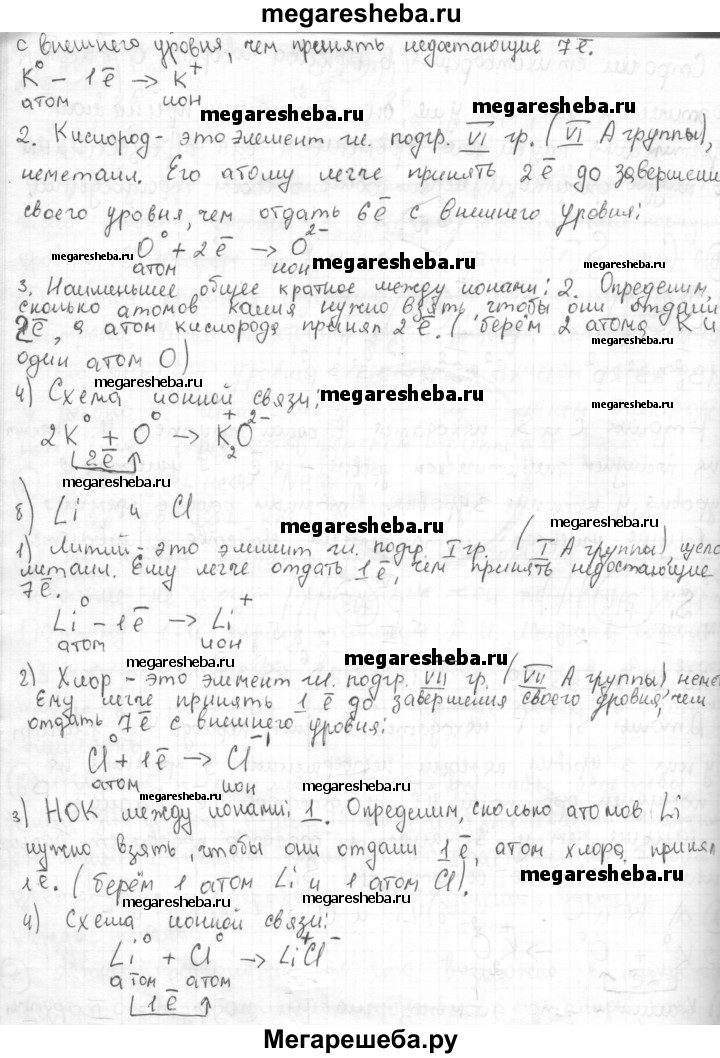 megaresheba.ru
с внешнего уровня, чем принять недостающие 7ē.
K⁰ - 1ē → K⁺
атом ион
megaresheba.ru megaresheba.ru
2. Кислород - это элемент гл. подгр. VI гр. (VI А группы),
неметалл. Его атому легче принять 2ē до завершени
своего уровня, чем отдать 6ē с внешнего уровня:
megaresheba.ru O⁰ + 2ē → O²⁻ megaresheba.ru
атом ион megaresheba.ru
3. Наименьшее общее кратное между ионами: 2. Определим,
сколько атомов калия нужно взять, чтобы они отдали
2ē, а атом кислорода принял 2ē. (берём 2 атома K и
один атом O)
megaresheba.ru
4) Схема ионной связи: megaresheba.ru
megaresheba.ru
2K⁰ + O⁰ → K₂⁺O²⁻
2ē
megaresheba.ru
б) Li и Cl
megaresheba.ru megaresheba.ru
1) Литий - это элемент гл. подгр. I гр. (I А группы) щело
металл. Ему легче отдать 1ē, чем принять недостающие
7ē.
Li⁰ - 1ē → Li⁺
атом ион
megaresheba.ru megaresheba.ru
2) Хлор - это элемент гл. подгр. VII гр. (VII А группы) неме
Ему легче принять 1ē до завершения своего уровня, чем
отдать 7ē с внешнего уровня:
Cl⁰ + 1ē → Cl⁻¹
атом ион
megaresheba.ru megaresheba.ru
3) НОК между ионами: 1. Определим, сколько атомов Li
нужно взять, чтобы они отдали 1ē, атом хлора принял
1ē. (берём 1 атом Li и 1 атом Cl).
megaresheba.ru
megaresheba.ru
4) Схема ионной связи:
Li⁰ + Cl⁰ → Li⁺Cl⁻
атом атом
1ē
Мегарешеба.ру